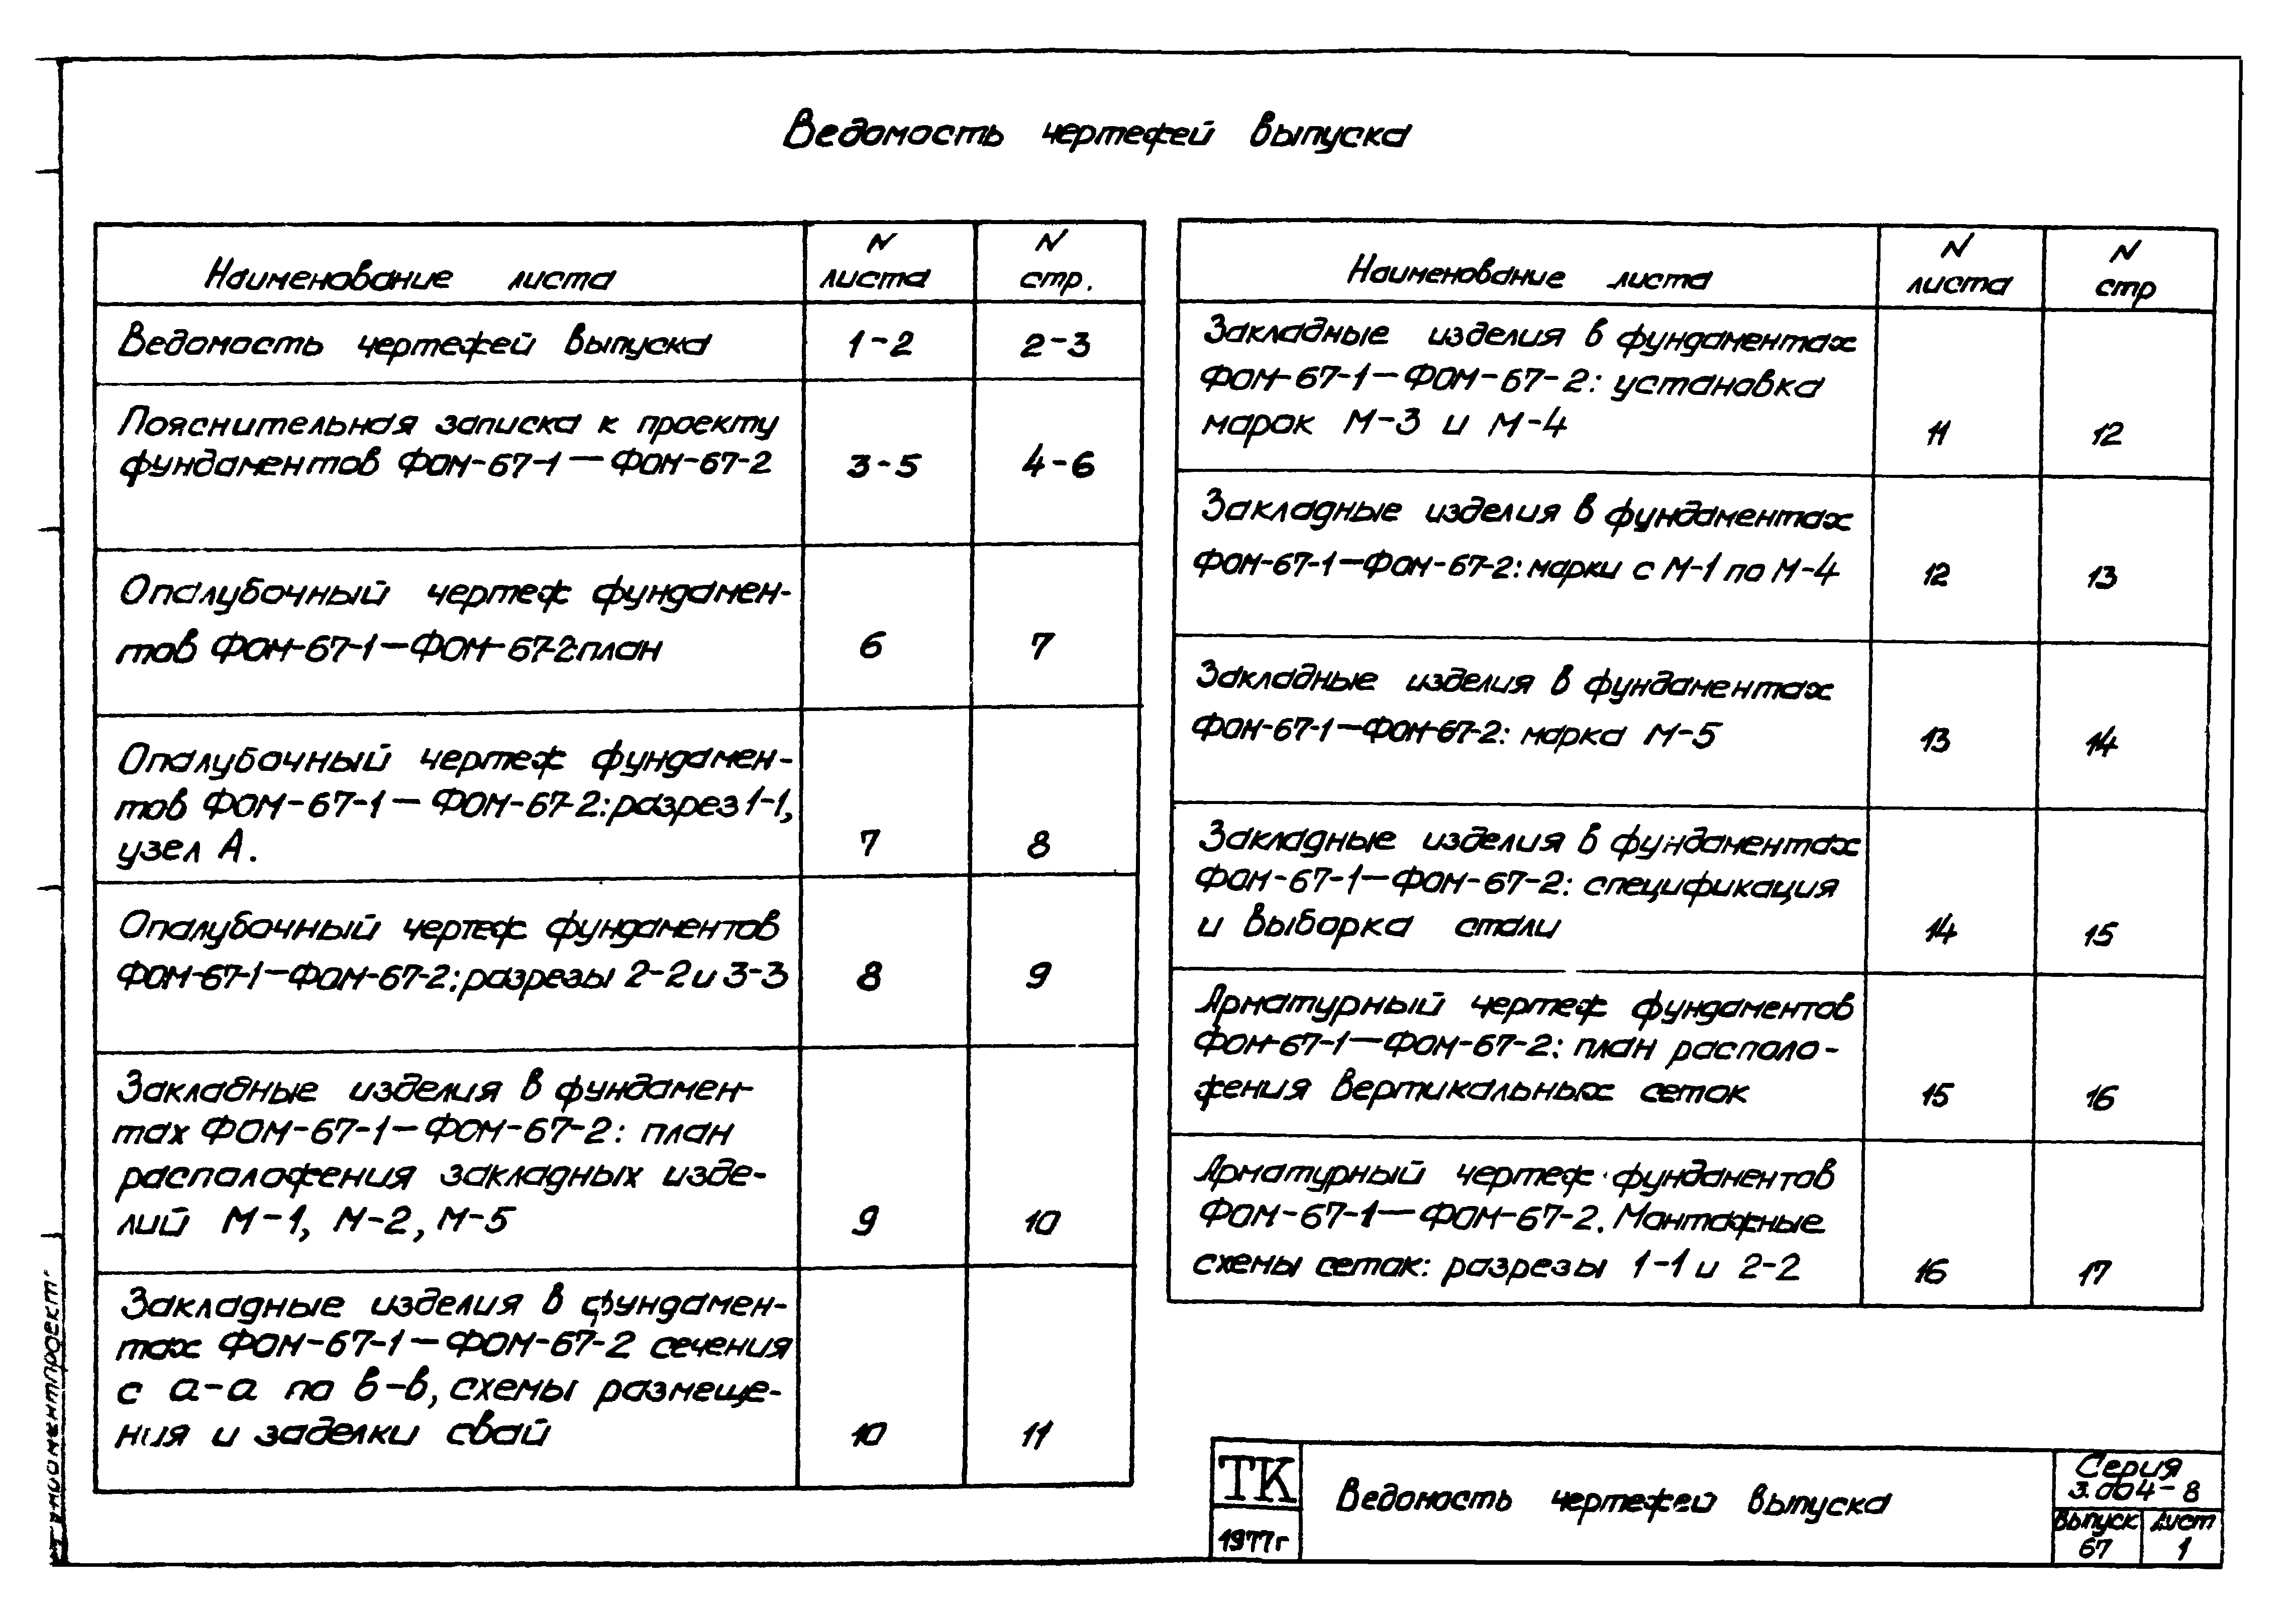 Ведомость чертежей выпуска
Наименование листа
N листа
N стр.
Ведомость чертежей выпуска 1-2 2-3
Пояснительная записка к проекту
фундаментов ФОМ-67-1—ФОМ-67-2 3-5 4-6
Опалубочный чертеж фундамен-
тов ФОМ-67-1—ФОМ-67-2:план 6 7
Опалубочный чертеж фундамен-
тов ФОМ-67-1—ФОМ-67-2:разрез 1-1,
узел А. 7 8
Опалубочный чертеж фундаментов
ФОМ-67-1—ФОМ-67-2:разрезы 2-2 и 3-3 8 9
Закладные изделия в фундамен-
тах ФОМ-67-1—ФОМ-67-2: план
расположения закладных изде-
лий М-1, М-2, М-5 9 10
Закладные изделия в фундамен-
тах ФОМ-67-1—ФОМ-67-2 сечения
с а-а по в-в, схемы размеще-
ния и заделки свай 10 11
Наименование листа
N листа
N стр
Закладные изделия в фундаментах
ФОМ-67-1—ФОМ-67-2: установка
марок М-3 и М-4 11 12
Закладные изделия в фундаментах
ФОМ-67-1—ФОМ-67-2: марки с М-1 по М-4 12 13
Закладные изделия в фундаментах
ФОМ-67-1—ФОМ-67-2: марка М-5 13 14
Закладные изделия в фундаментах
ФОМ-67-1—ФОМ-67-2: спецификация
и выборка стали 14 15
Арматурный чертеж фундаментов
ФОМ-67-1—ФОМ-67-2: план располо-
жения вертикальных сеток 15 16
Арматурный чертеж фундаментов
ФОМ-67-1—ФОМ-67-2. Монтажные
схемы сеток: разрезы 1-1 и 2-2 16 17
ТК
1977г
Ведомость чертежей выпуска
Серия
3.004-8
Выпуск
67
Лист
1